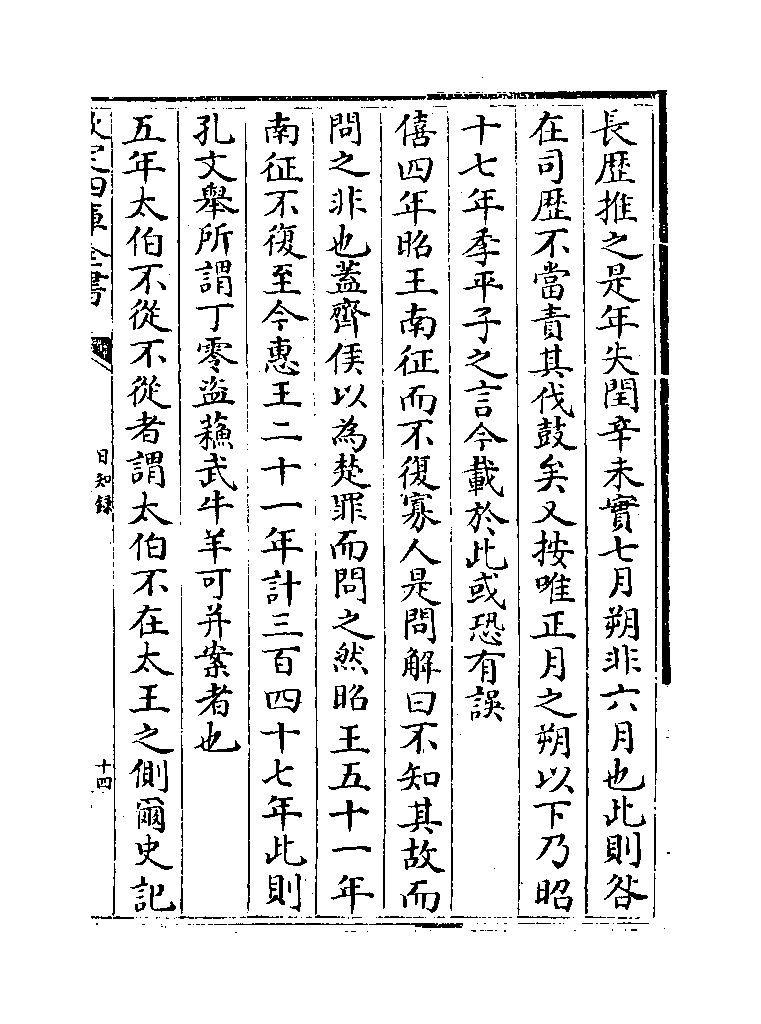 長歴推之是年失閏辛未實七月朔非六月也此則咎
在司歴不當責其伐鼓矣又按唯正月之朔以下乃昭
十七年季平子之言今載於此或恐有誤
僖四年昭王南征而不復寡人是問解曰不知其故而
問之非也蓋齊侯以為楚罪而問之然昭王五十一年
南征不復至今惠王二十一年計三百四十七年此則
孔文舉所謂丁零盜蘓武牛羊可并案者也
五年太伯不從不從者謂太伯不在太王之側爾史記
欽定四庫全書
日知錄
十四